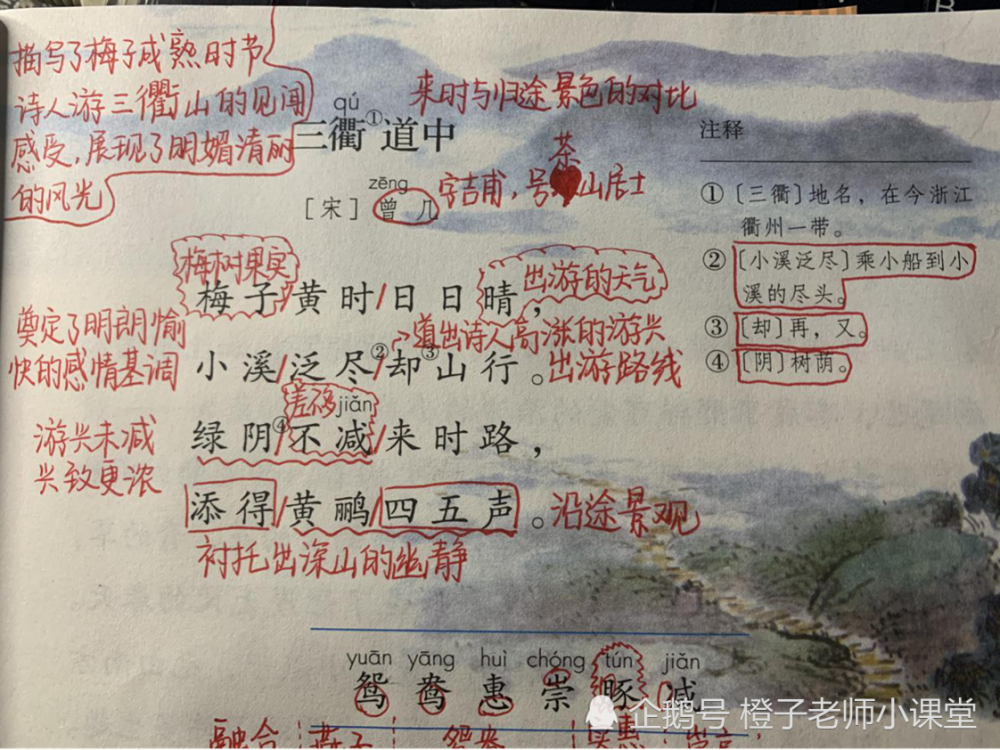 描写了梅子成熟时节
诗人游三衢山的见闻
感受,展现了明媚清丽
的风光
来时与归途景色的对比
qú
三衢①道中
茶
zēng
[宋]曾几
字吉甫,号山居士
梅树果实
出游的天气
梅子/黄时/日日晴,
奠定了明朗愉
快的感情基调
道出诗人高涨的游兴
小溪/泛尽②/却③山行。
出游路线
差不多
jiǎn
绿阴④/不减/来时路,
游兴未减
兴致更浓
添得/黄鹂/四五声。
沿途景观
衬托出深山的幽静
注释
①[三衢]地名,在今浙江
衢州一带。
②[小溪泛尽]乘小船到小
溪的尽头。
③[却]再,又。
④[阴]树荫。
yuān yāng huì chóng tún jiǎn
鸳 鸯 惠 崇 豚 减
融合
燕子
鸳鸯
企鹅号 橙子老师小课堂